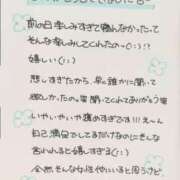 前の日楽しみすぎて寝れなかったって
そんな楽しみしてくれたのっ(:;)??
嬉しい(;:)
悲しすぎたから、早く誰かに聞いて
欲しかったの。笑聞いてくれてありがとう
いやいやいや褒めすぎです!!!え〜ん
自己満足でしてるだけなのにそんな
言われると嬉しすぎる(;:)
全然そんな女性他にいると思うけど